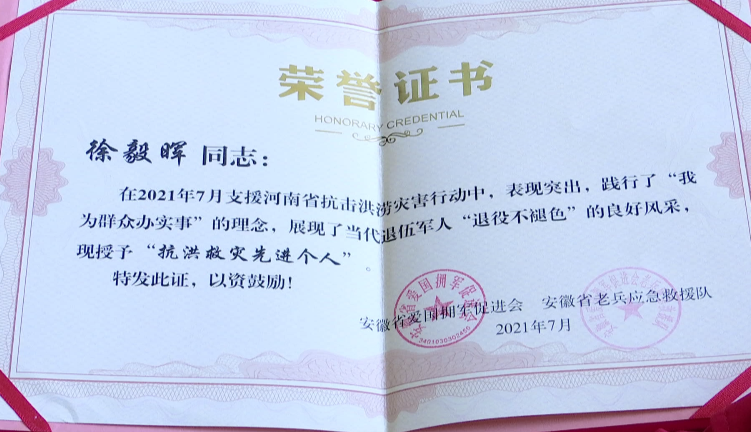 荣誉证书
HONORARY CREDENTIAL
徐毅晖 同志：
在2021年7月支援河南省抗击洪涝灾害行动中，表现突出，践行了“我
为群众办实事”的理念，展现了当代退伍军人“退役不褪色”的良好风采，
现授予“抗洪救灾先进个人”。
特发此证，以资鼓励！
安徽省爱国拥军促进会 安徽省老兵应急救援队
2021年7月
安徽省爱国拥军促进会